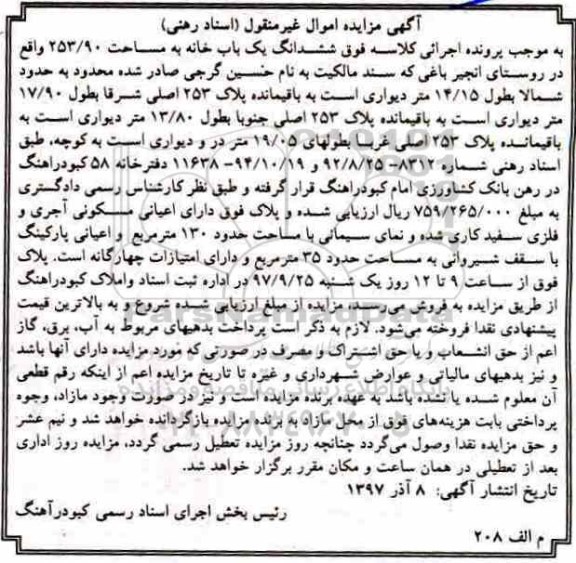 آگهی مزایده اموال غیرمنقول (اسناد رهنی)
به موجب پرونده اجرائی کلاسه فوق ششدانگ یک باب خانه به مساحت ۲۵۳/۹۰ واقع
در روستای انجیر باغی که سند مالکیت به نام حسین گرجی صادر شده محدود به حدود
شمالا بطول ۱۴/۱۵ متر دیواری است به باقیمانده پلاک ۲۵۳ اصلی شرقا بطول ۱۷/۹۰
متر دیواری است به باقیمانده پلاک ۲۵۳ اصلی جنوبا بطول ۱۳/۸۰ متر دیواری است به
باقیمانده پلاک ۲۵۳ اصلی غربا بطولهای ۱۹/۰۵ متر در و دیواری است به کوچه، طبق
اسناد رهنی شماره ۸۳۱۲- ۹۲/۸/۲۵ و ۹۴/۱۰/۱۹- ۱۱۶۳۸ دفترخانه ۵۸ کبودراهنگ
در رهن بانک کشاورزی امام کبودراهنگ قرار گرفته و طبق نظر کارشناس رسمی دادگستری
به مبلغ ۷۵۹/۲۶۵/۰۰۰ ریال ارزیابی شده و پلاک فوق دارای اعیانی مسکونی آجری و
فلزی سفید کاری شده و نمای سیمانی با مساحت حدود ۱۳۰ مترمربع و اعیانی پارکینگ
با سقف شیروانی به مساحت حدود ۳۵ مترمربع و دارای امتیازات چهارگانه است. پلاک
فوق از ساعت ۹ تا ۱۲ روز یک شنبه ۹۷/۹/۲۵ در اداره ثبت اسناد واملاک کبودراهنگ
از طریق مزایده به فروش می‌رسد، مزایده از مبلغ ارزیابی شده شروع و به بالاترین قیمت
پیشنهادی نقدا فروخته می‌شود. لازم به ذکر است پرداخت بدهیهای مربوط به آب، برق، گاز
اعم از حق انشعاب و یا حق اشتراک و مصرف در صورتی که مورد مزایده دارای آنها باشد
و نیز بدهیهای مالیاتی و عوارض شهرداری و غیره تا تاریخ مزایده اعم از اینکه رقم قطعی
آن معلوم شده یا نشده باشد به عهده برنده مزایده است و نیز در صورت وجود مازاد، وجوه
پرداختی بابت هزینه‌های فوق از محل مازاد به برنده مزایده بازگردانده خواهد شد و نیم عشر
و حق مزایده نقدا وصول می‌گردد چنانچه روز مزایده تعطیل رسمی گردد، مزایده روز اداری
بعد از تعطیلی در همان ساعت و مکان مقرر برگزار خواهد شد.
تاریخ انتشار آگهی: ۸ آذر ۱۳۹۷
رئیس بخش اجرای اسناد رسمی کبودرآهنگ
م الف ۲۰۸